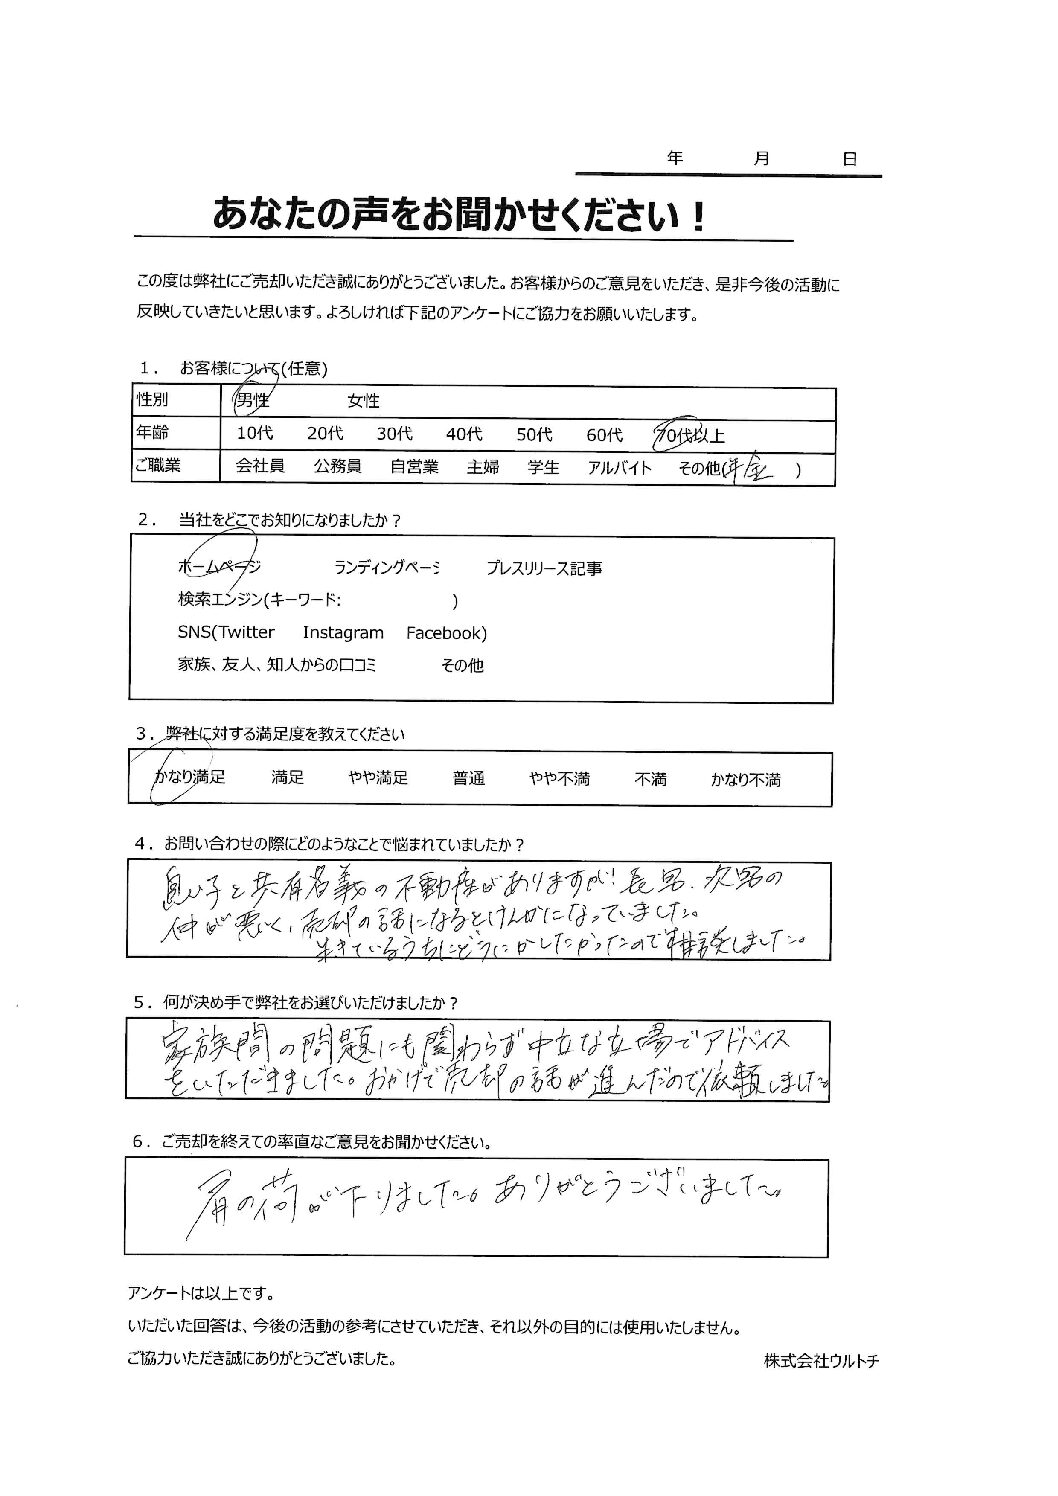 年 月 日
あなたの声をお聞かせください！
この度は弊社にご売却いただき誠にありがとうございました。お客様からのご意見をいただき、是非今後の活動に
反映していきたいと思います。よろしければ下記のアンケートにご協力をお願いいたします。
１． お客様について(任意)
性別 男性 女性
年齢 10代 20代 30代 40代 50代 60代 70代以上
ご職業 会社員 公務員 自営業 主婦 学生 アルバイト その他(年金 )
２． 当社をどこでお知りになりましたか？
ホームページ ランディングページ プレスリリース記事
検索エンジン(キーワード: )
SNS(Twitter Instagram Facebook)
家族、友人、知人からの口コミ その他
３．弊社に対する満足度を教えてください
かなり満足 満足 やや満足 普通 やや不満 不満 かなり不満
４．お問い合わせの際にどのようなことで悩まれていましたか？
息子と共有名義の不動産がありますが、長男、次男の
仲が悪く、売却の話になるとけんかになっていました。
生きているうちにどうにかしたかったので相談しました。
５．何が決め手で弊社をお選びいただけましたか？
家族間の問題にも関わらず中立な立場でアドバイス
をいただきました。おかげで売却の話が進んだので依頼しました
６．ご売却を終えての率直なご意見をお聞かせください。
肩の荷が下りました。ありがとうございました。
アンケートは以上です。
いただいた回答は、今後の活動の参考にさせていただき、それ以外の目的には使用いたしません。
ご協力いただき誠にありがとうございました。 株式会社ウルトチ